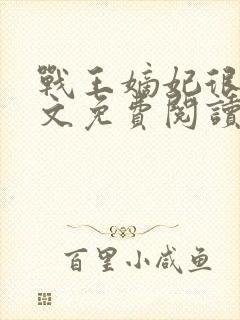 戰王嫡妃很
文免費閱讀
百里小咸鱼